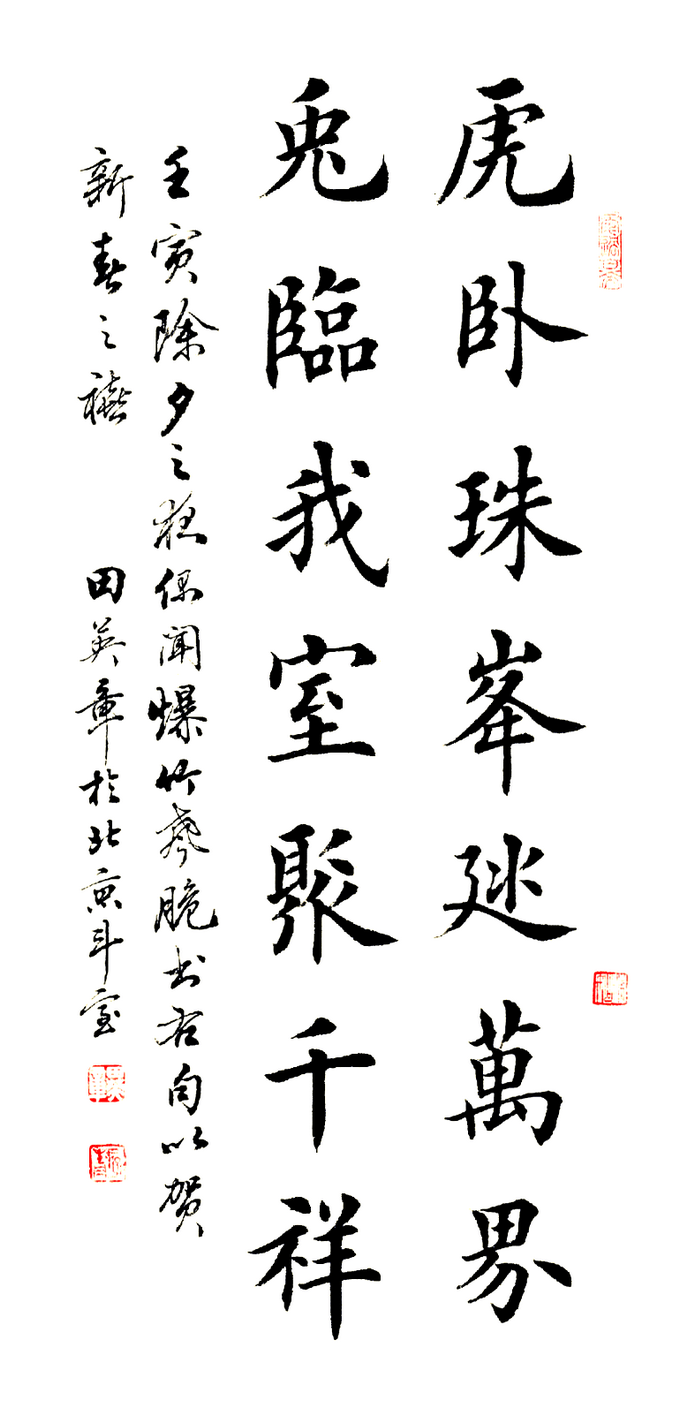 虎卧珠峯萬界
兔臨我室聚千祥
壬寅除夕之夜偶聞爆竹聲脆书右句以贺
新春之禧 田英章於北京斗室